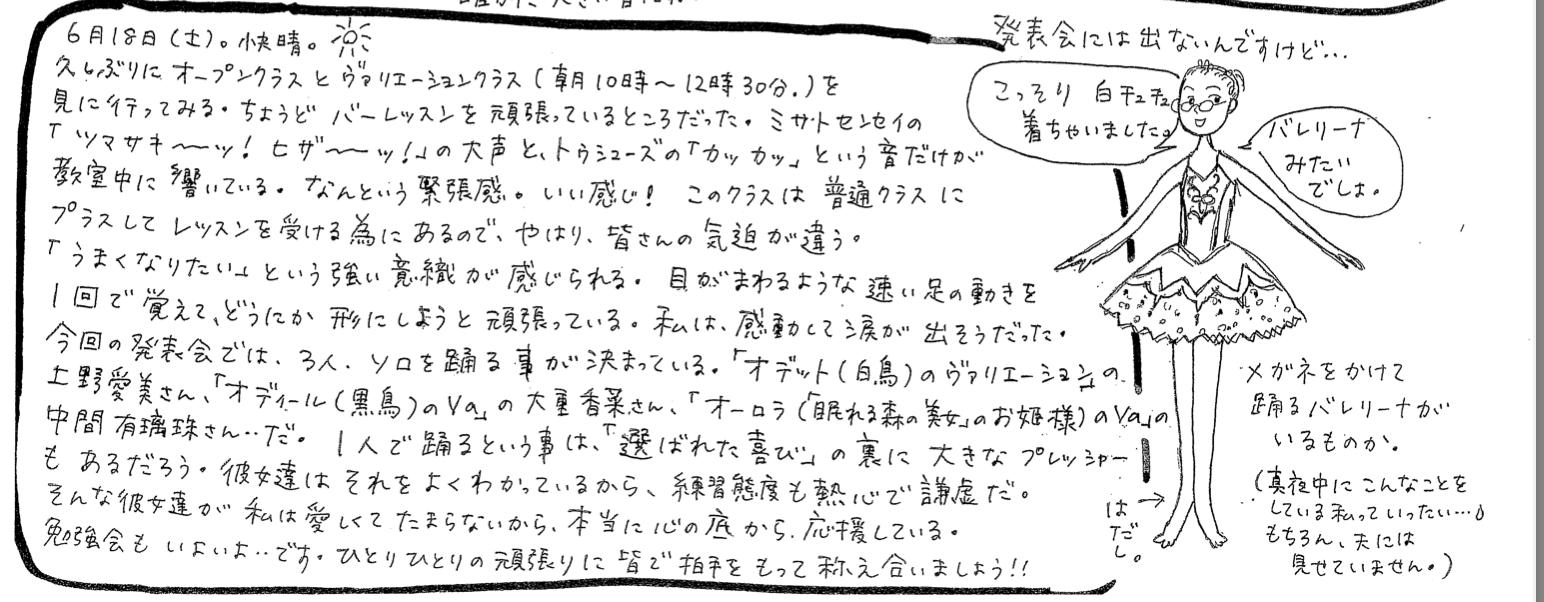 6月18日(土)。快晴。
久しぶりに オープンクラスと ヴァリエーションクラス(朝10時〜12時30分.)を
見に行ってみる。ちょうど バーレッスンを 頑張っているところだった。ミサトセンセイの
「ツマサキ〜〜ッ! ヒザ〜〜ッ!」の大声と、トウシューズの「カッカッ」という音だけが
教室中に 響いている。なんという 緊張感。いい感じ! このクラスは 普通クラスに
プラスして レッスンを受ける為に あるので、やはり、皆さんの 気迫が違う。
「うまくなりたい」という強い意織が感じられる。目がまわるような速い足の動きを
1回で覚えて、どうにか 形にしようと 頑張っている。私は、感動して涙が 出そうだった。
今回の発表会では、3人、ソロを踊る事が決まっている。「オデット(白鳥)のヴァリエーション」の
上野愛美さん、「オディール(黒鳥)のVa」の 大重香菜さん、「オーロラ(「眠れる森の美女」のお姫様)のVa」の
中間有璃珠さん‥だ。1人で踊るという事は、「選ばれた喜び」の裏に 大きな プレッシャー
も あるだろう。彼女達は それを よくわかっているから、練習態度も熱心で謙虚だ。
そんな彼女達が 私は愛しくて たまらないから、本当に心の底から、応援している。
勉強会も いよいよ‥です。ひとりひとりの頑張りに 皆で拍手をもって 称え合いましょう!!
発表会には出ないんですけど…
こっそり 白チュチュ
着ちゃいました。
バレリーナ
みたい
でしょ。
メガネをかけて
踊るバレリーナが
いるものか。
(真夜中に こんなことを
している私っていったい…。
もちろん、夫には
見せていません。)
はだし。→